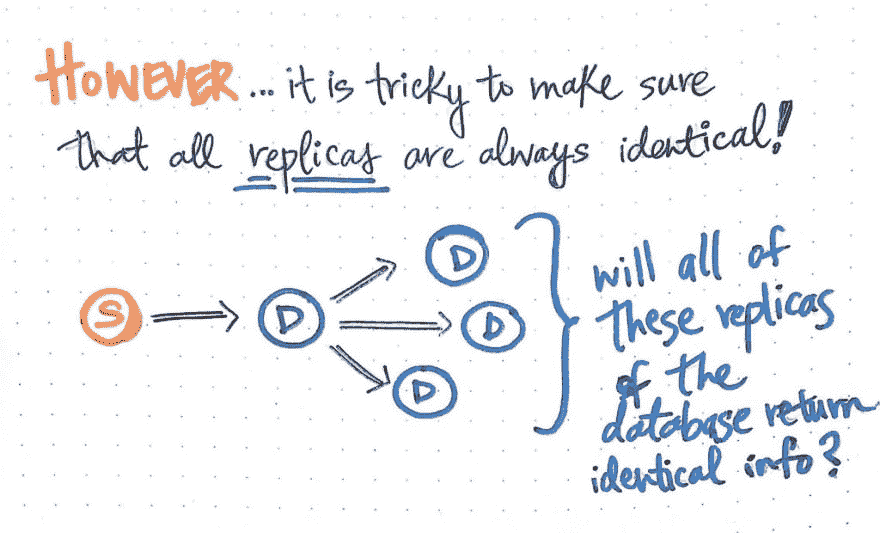 HOWEVER... it is tricky to make sure
that all replicas are always identical!
S
D
D
D
D
will all of
these replicas
of the
database return
identical info?